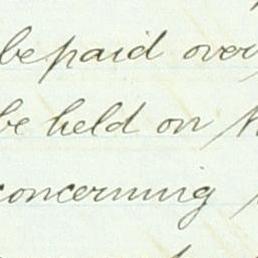 be paid over
be held on
concerning